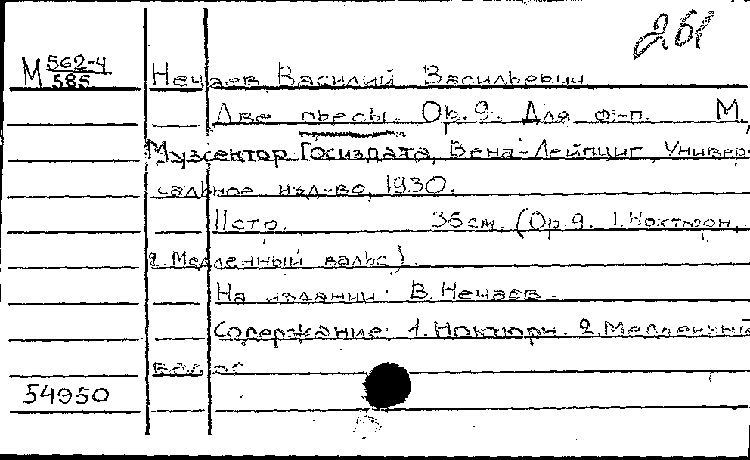 261
М 562-4
585
Нечаев, Василий Васильевич
Две пьесы. Ор. 9. Для ф-п. М,
Музсектор Госиздата, Вена-Лейпциг, Универ-
сальное изд-во, 1930.
11 стр. 36 см. (Ор. 9. 1. Ноктюрн,
2. Медленный вальс).
На издании: В. Нечаев.
Содержание: 1. Ноктюрн. 2. Медленный
вальс
54950